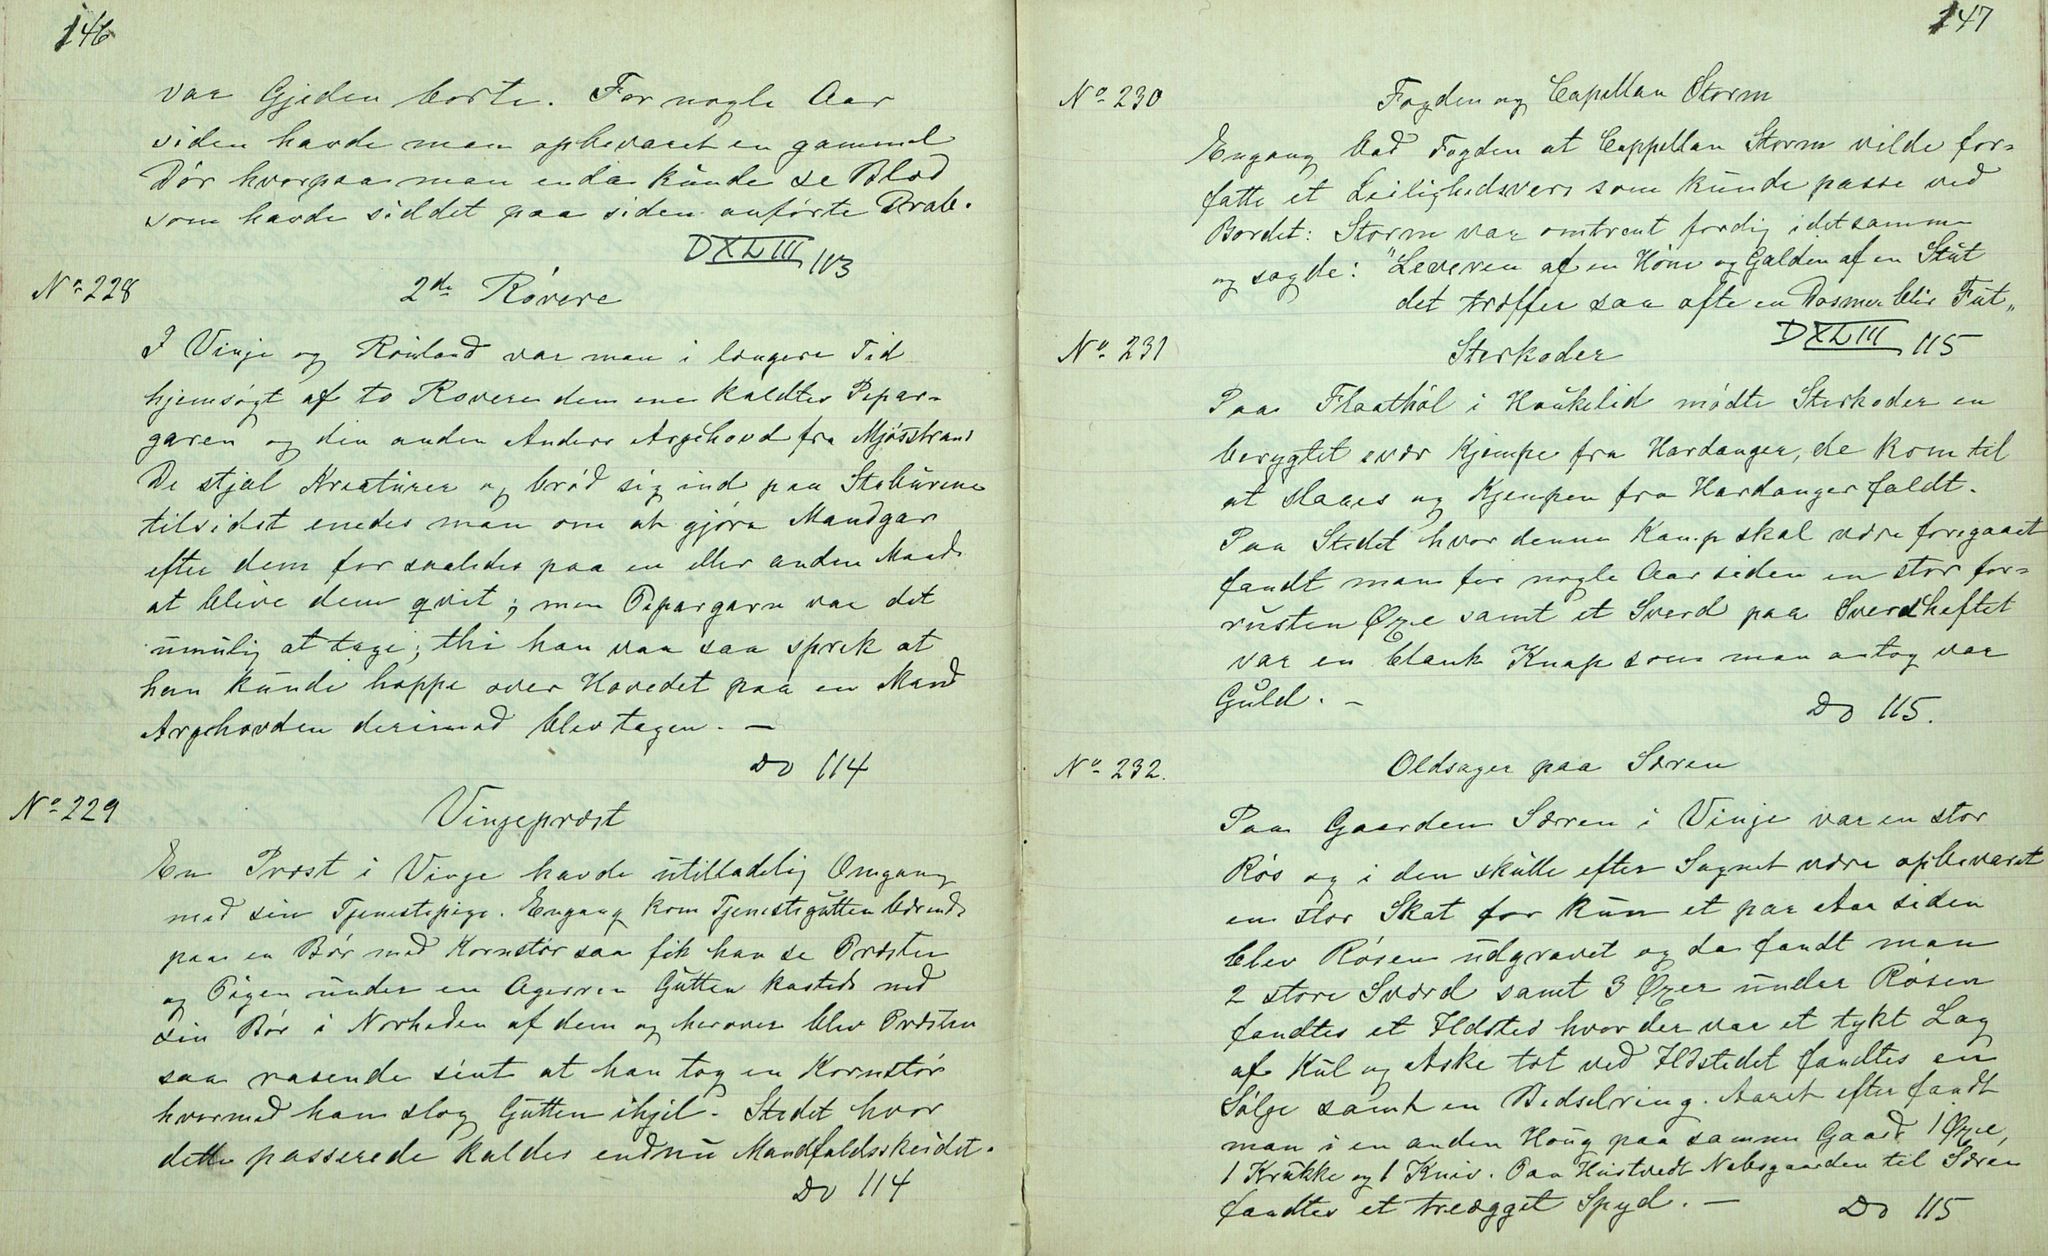 146
var Gjeden borte. For nogle Aar
siden havde man opbevaret en gammel
Dør hvorpaa man enda kunde se Blod
som havde siddet paa siden anførte Drab.
DXLIII 113
No 228
2de Røvere
I Vinje og Rauland var man i længere Tid
hjemsøgt af to Røvere den ene kaldtes Pepar-
garen og den anden Anders Argehovd fra Mjøsstrand
De stjal Kreaturer og brød sig ind paa Stabburene
tilsidst enedes man om at gjøre Mandgar
efter dem for saaledes paa en eller anden Maade
at blive dem qvit; men Pepargaren var det
umulig at tage; thi han var saa sprek at
han kunde hoppe over Hovedet paa en Mand
Argehovden derimod blev tagen. —
Do 114
No 229
Vinjepræst
En Præst i Vinje havde utilladelig Omgang
med sin Tjenestepige. Engang kom Tjenestegutten bærende
paa en Bør med Kornstør saa fik han se Præsten
og Pigen under en Agerren Gutten kastede ned
sin Bør i Nærheden af dem og herover blev Præsten
saa rasende sint at han tog en Kornstør
hvormed han slog Gutten ihjel. Stedet hvor
dette passerede kaldes endnu Mandfaldsskeidet.
Do 114
147
No 230
Fogden og Capellan Storm
Engang bad Fogden at Cappellan Storm vilde for-
fatte et Leilighedsvers som kunde passe ved
Bordet: Storm var omtrent færdig i det samme
og sagde: "Leveren af en Høne og Galden af en Stut
det træffer saa ofte en Dosmer blir Fut"
DXLIII 115
No 231
Sterkoder
Paa Flaathøl i Haukelid mødte Sterkoder en
berygtet svær Kjempe fra Hardanger, de kom til
at slaaes og Kjempen fra Hardanger faldt.
Paa Stedet hvor denne Kamp skal være foregaaet
fandt man for nogle Aar siden en stor for-
rusten Øxe samt et Sverd paa Sverdheftet
var en blank Knap som man antog var
Guld. —
Do 115.
No 232.
Oldsager paa Særen
Paa Gaarden Særren i Vinje var en stor
Røs og i den skulle efter Sagnet være opbevaret
en stor Skat for kun et par Aar siden
blev Røsen udgravet og da fandt man
2 store Sværd samt 3 Øxer under Røsen
fandtes et Ildsted hvor der var et tykt Lag
af Kul og Aske tæt ved Ildstedet fandtes en
Sølge samt en Bidselring. Aaret efter fandt
man i en anden Houg paa samme Gaard 1 Øxe,
1 Krukke og 1 Kniv. Paa Huistvedt Nabogaarden til Særen
fandtes et treegget Spyd. —
Do 115